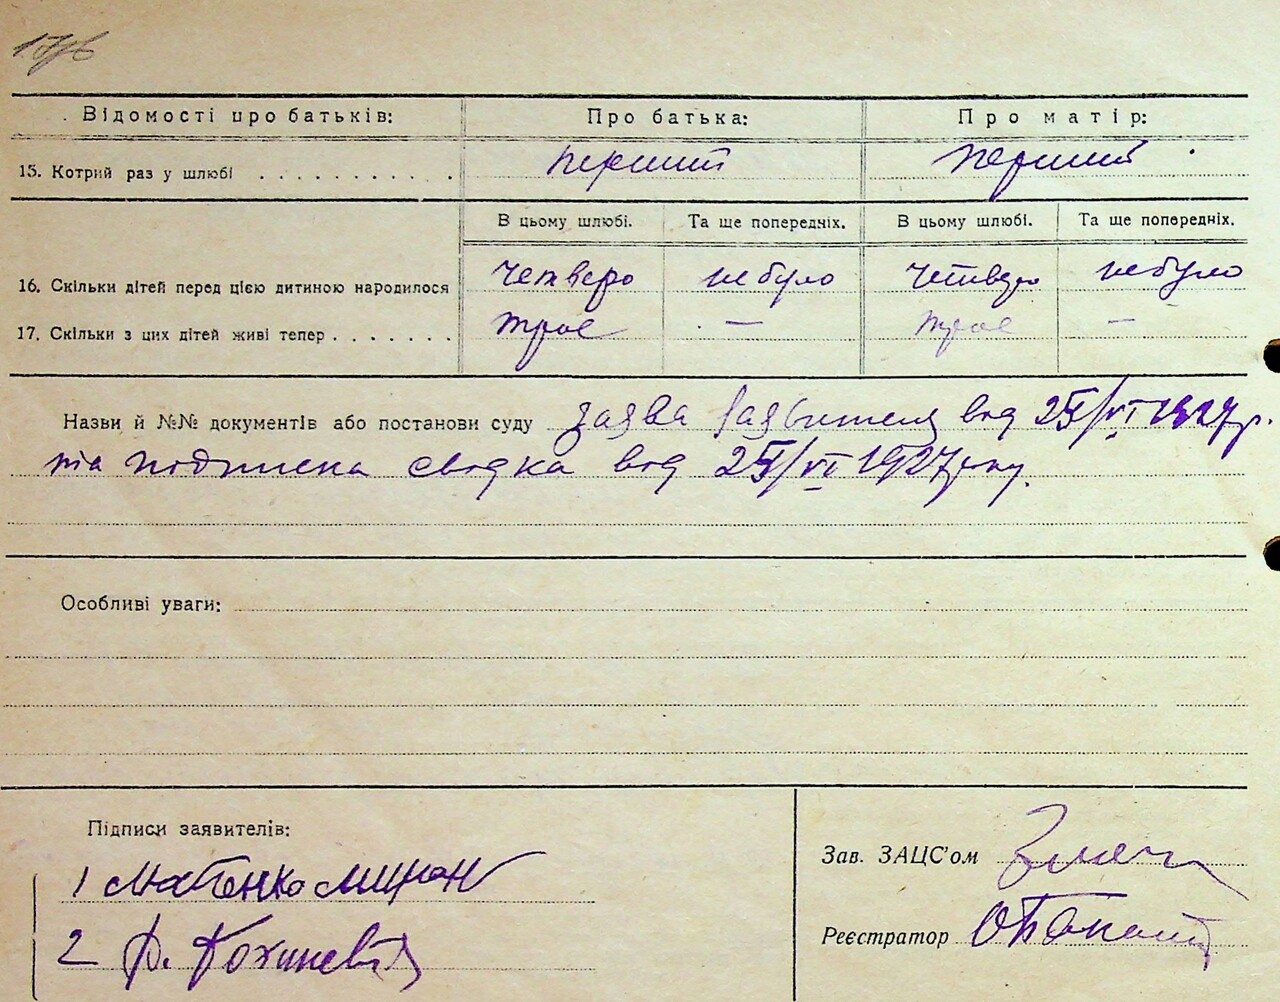 176
Відомості про батьків: Про батька: Про матір:
15. Котрий раз у шлюбі . . . . . . . . . . . перший перший
В цьому шлюбі. Та ще попередніх. В цьому шлюбі. Та ще попередніх.
16. Скільки дітей перед цією дитиною народилося четверо не було четверо не було
17. Скільки з цих дітей живі тепер . . . . . . . троє — троє —
Назви й №№ документів або постанови суду заява заявителя від 25/VI 1927 р.
та подписка свідка від 25/VI 1927 року.
Особливі уваги:
Підписи заявителів:
1 Матенко Мирон
Зав. ЗАЦС'ом
2
Реєстратор